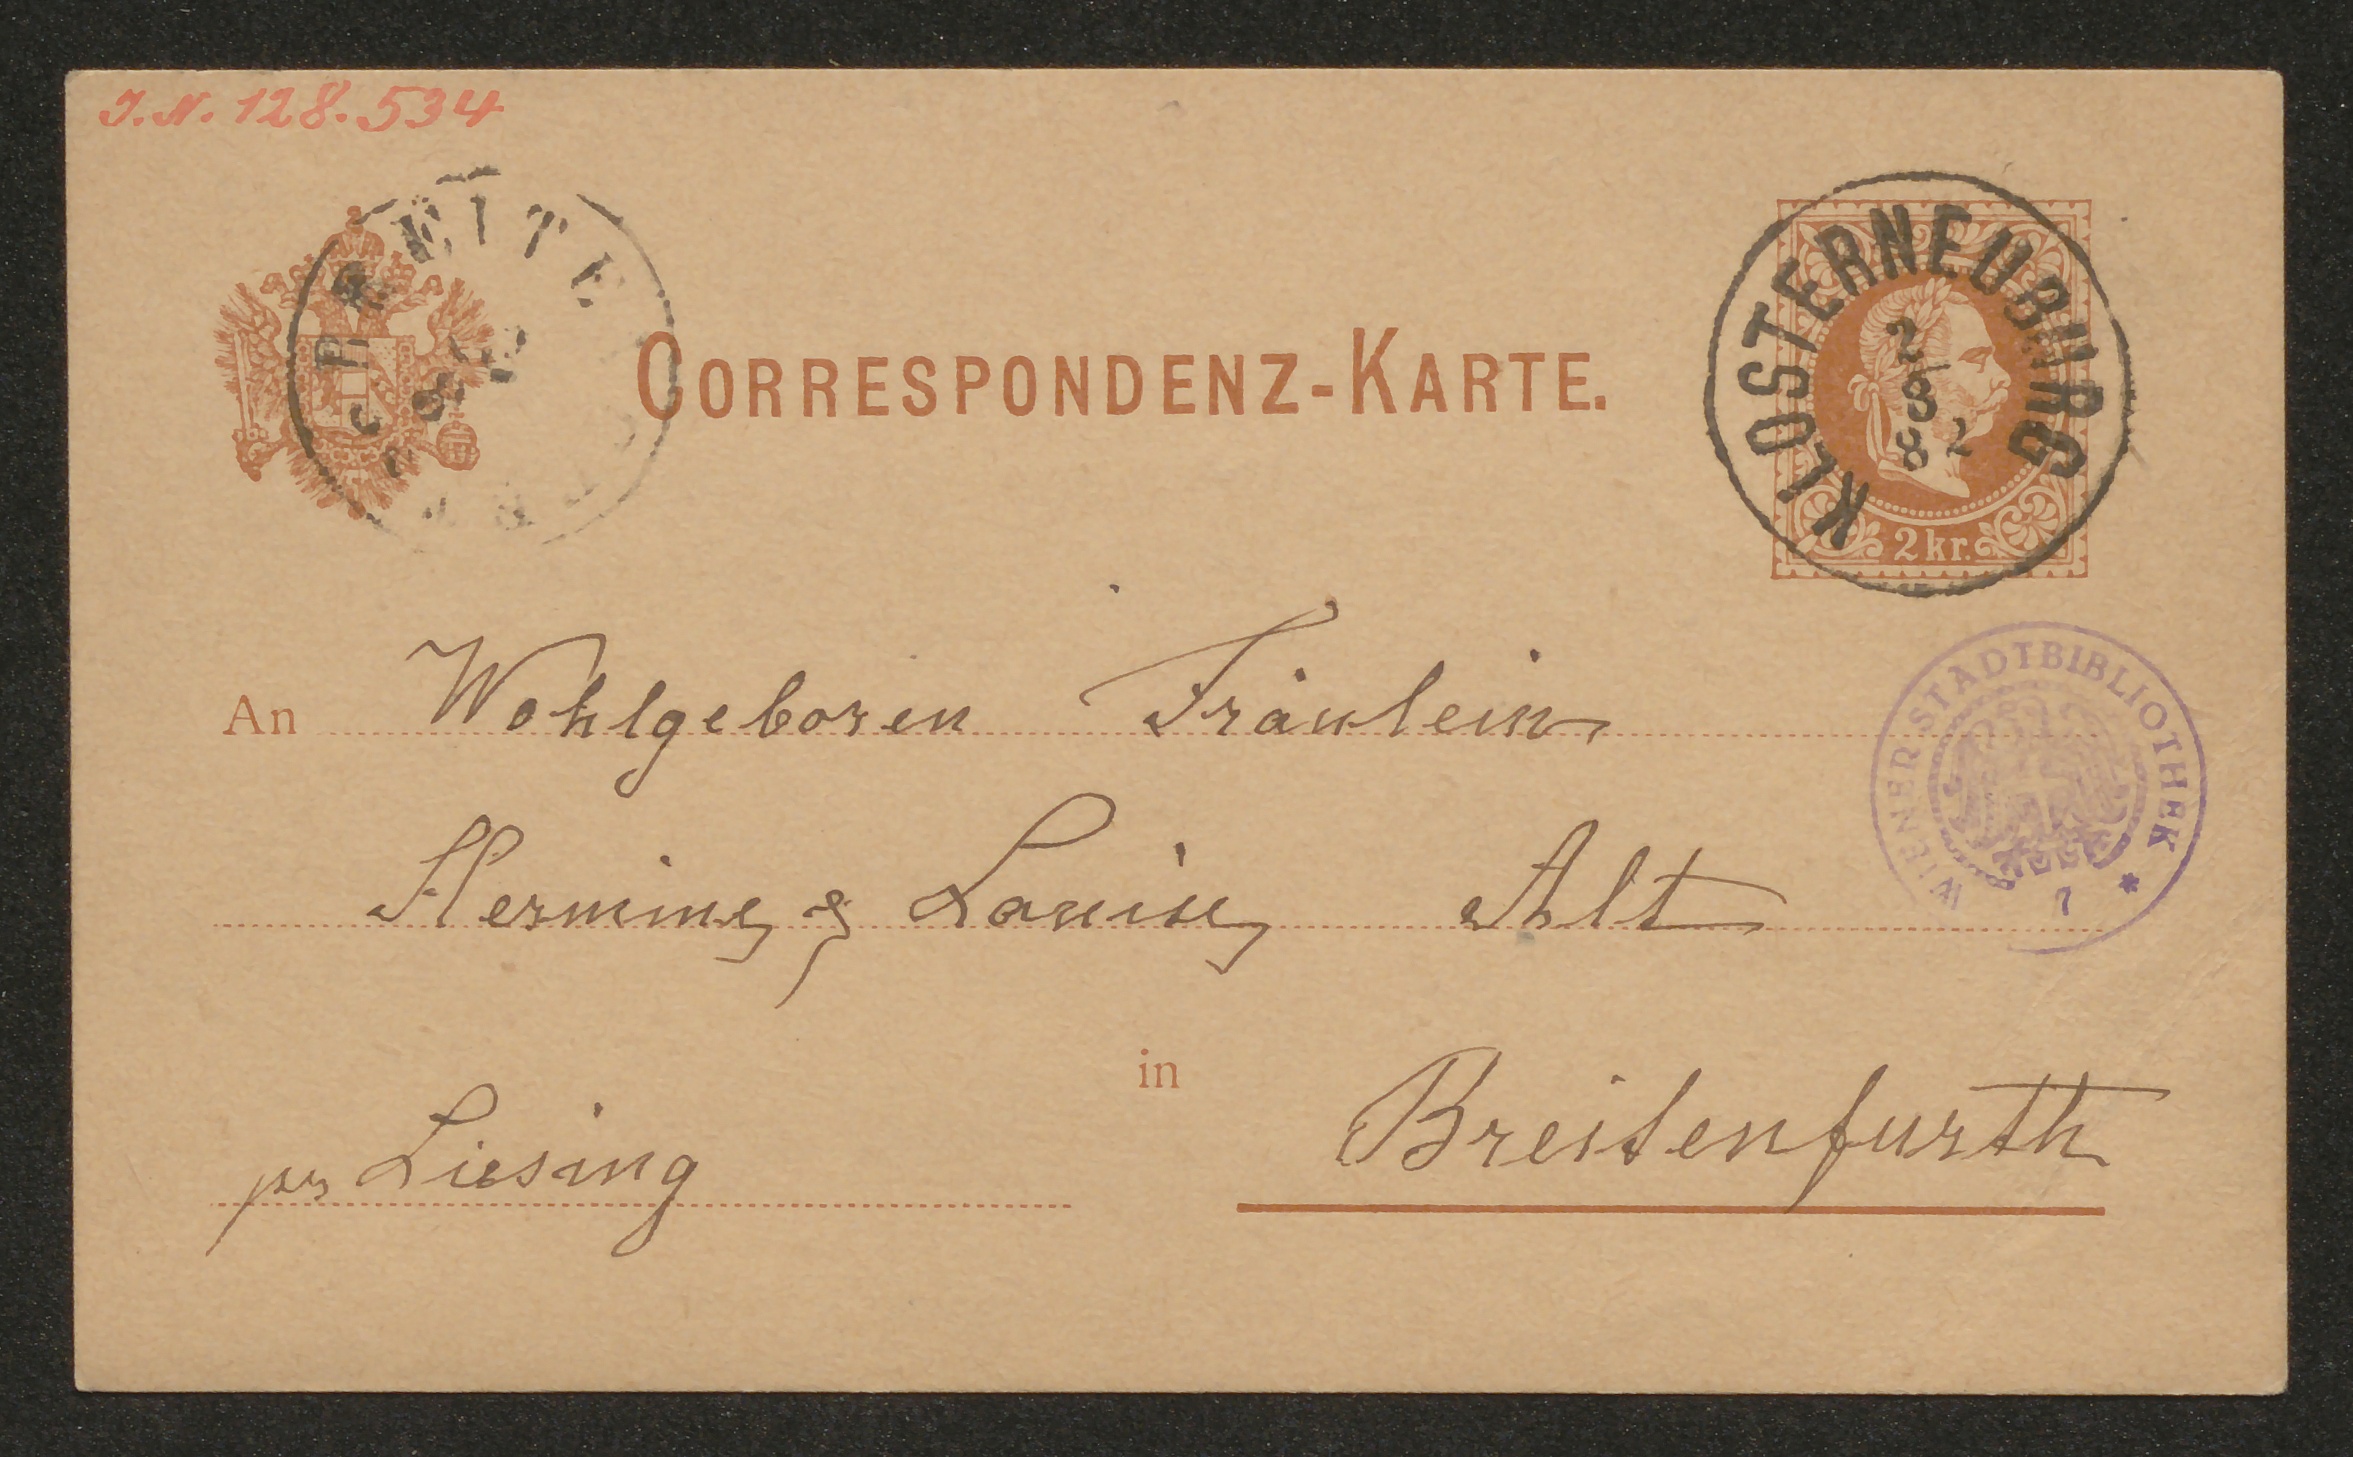 J.N. 128.534
CORRESPONDENZ-KARTE.
KLOSTERNEUBURG
2/8
82
2 kr.
WIENER STADTBIBLIOTHEK *
7
An Wohlgeboren Fräulein
Hermine & Louise Alt
in
pr Liesing Breitenfurth